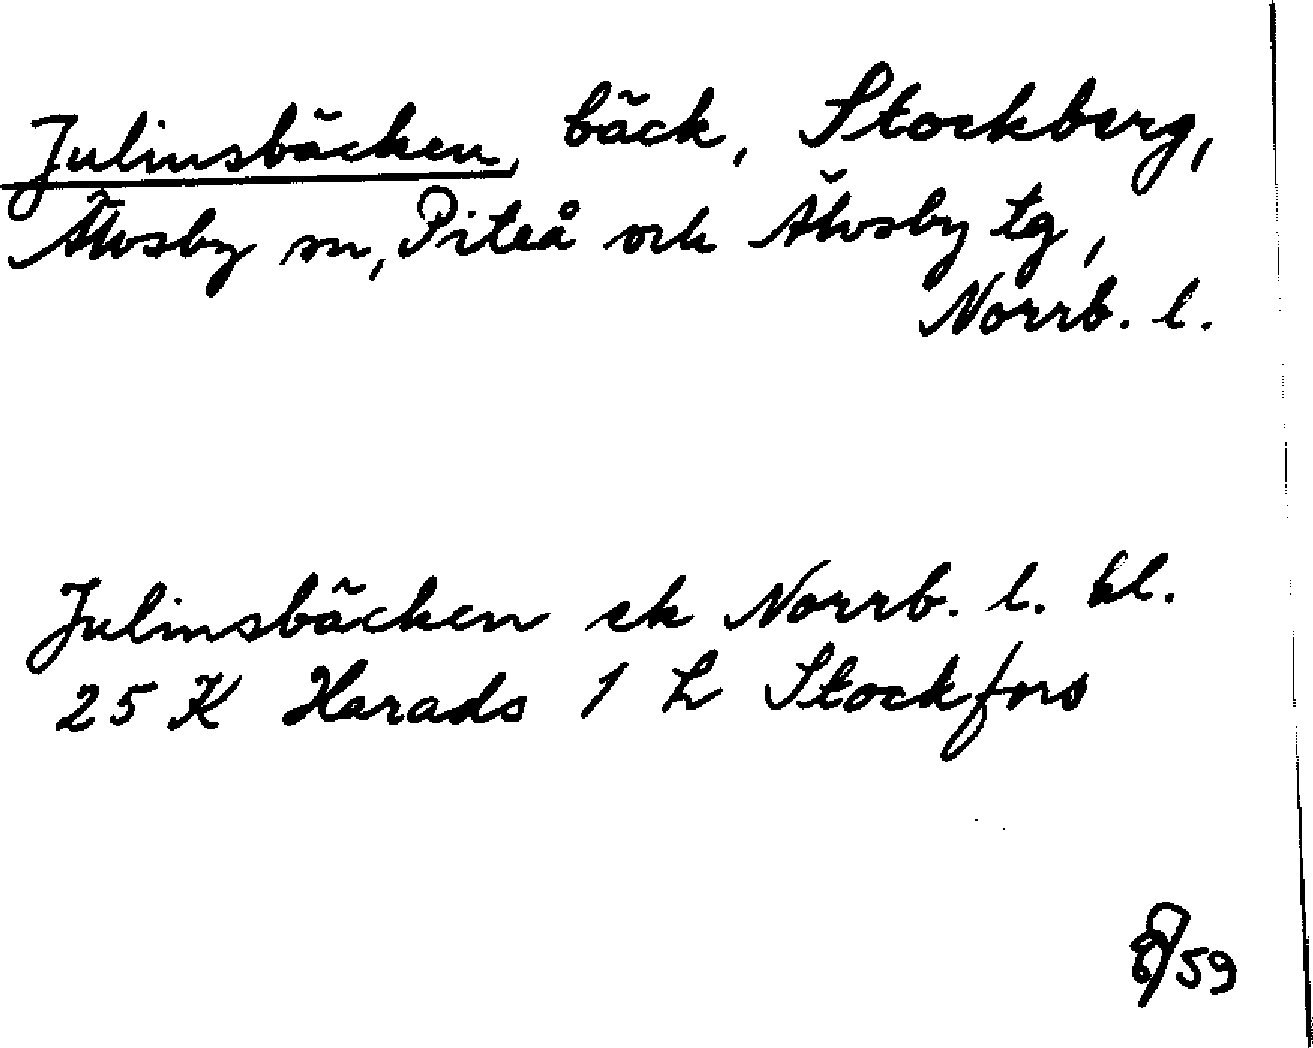 Julinsbäcken, bäck, Stockberg,
Älvsby sn, Piteå och Älvsby tg,
Norrb. l.
Julinsbäcken ek Norrb. l. bl.
25 K Harads 1 L Stockfors
59